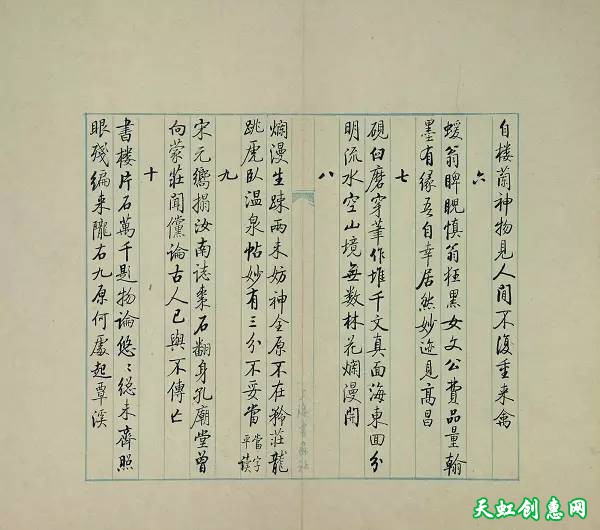 自楼蘭神物見人間不復重来禽
六
蝯翁睥睨慎翁狂黑女文公費品量翰
墨有緣吾自幸居然妙迹見高昌
七
硯臼磨穿筆作堆千文真面海東回分
明流水空山境無数林花爛漫開
八
爛漫生踈两未妨神全原不在矜莊龍
跳虎卧温泉帖妙有三分不妥當 當字平讀
九
宋元嚮搨汝南誌棗石翻身孔廟堂曾
向蒙莊聞儻論古人已與不傳亡
十
書楼片石萬千題物論悠〻総未齊照
眼殘編来隴右九原何處起覃溪
天虹创惠网